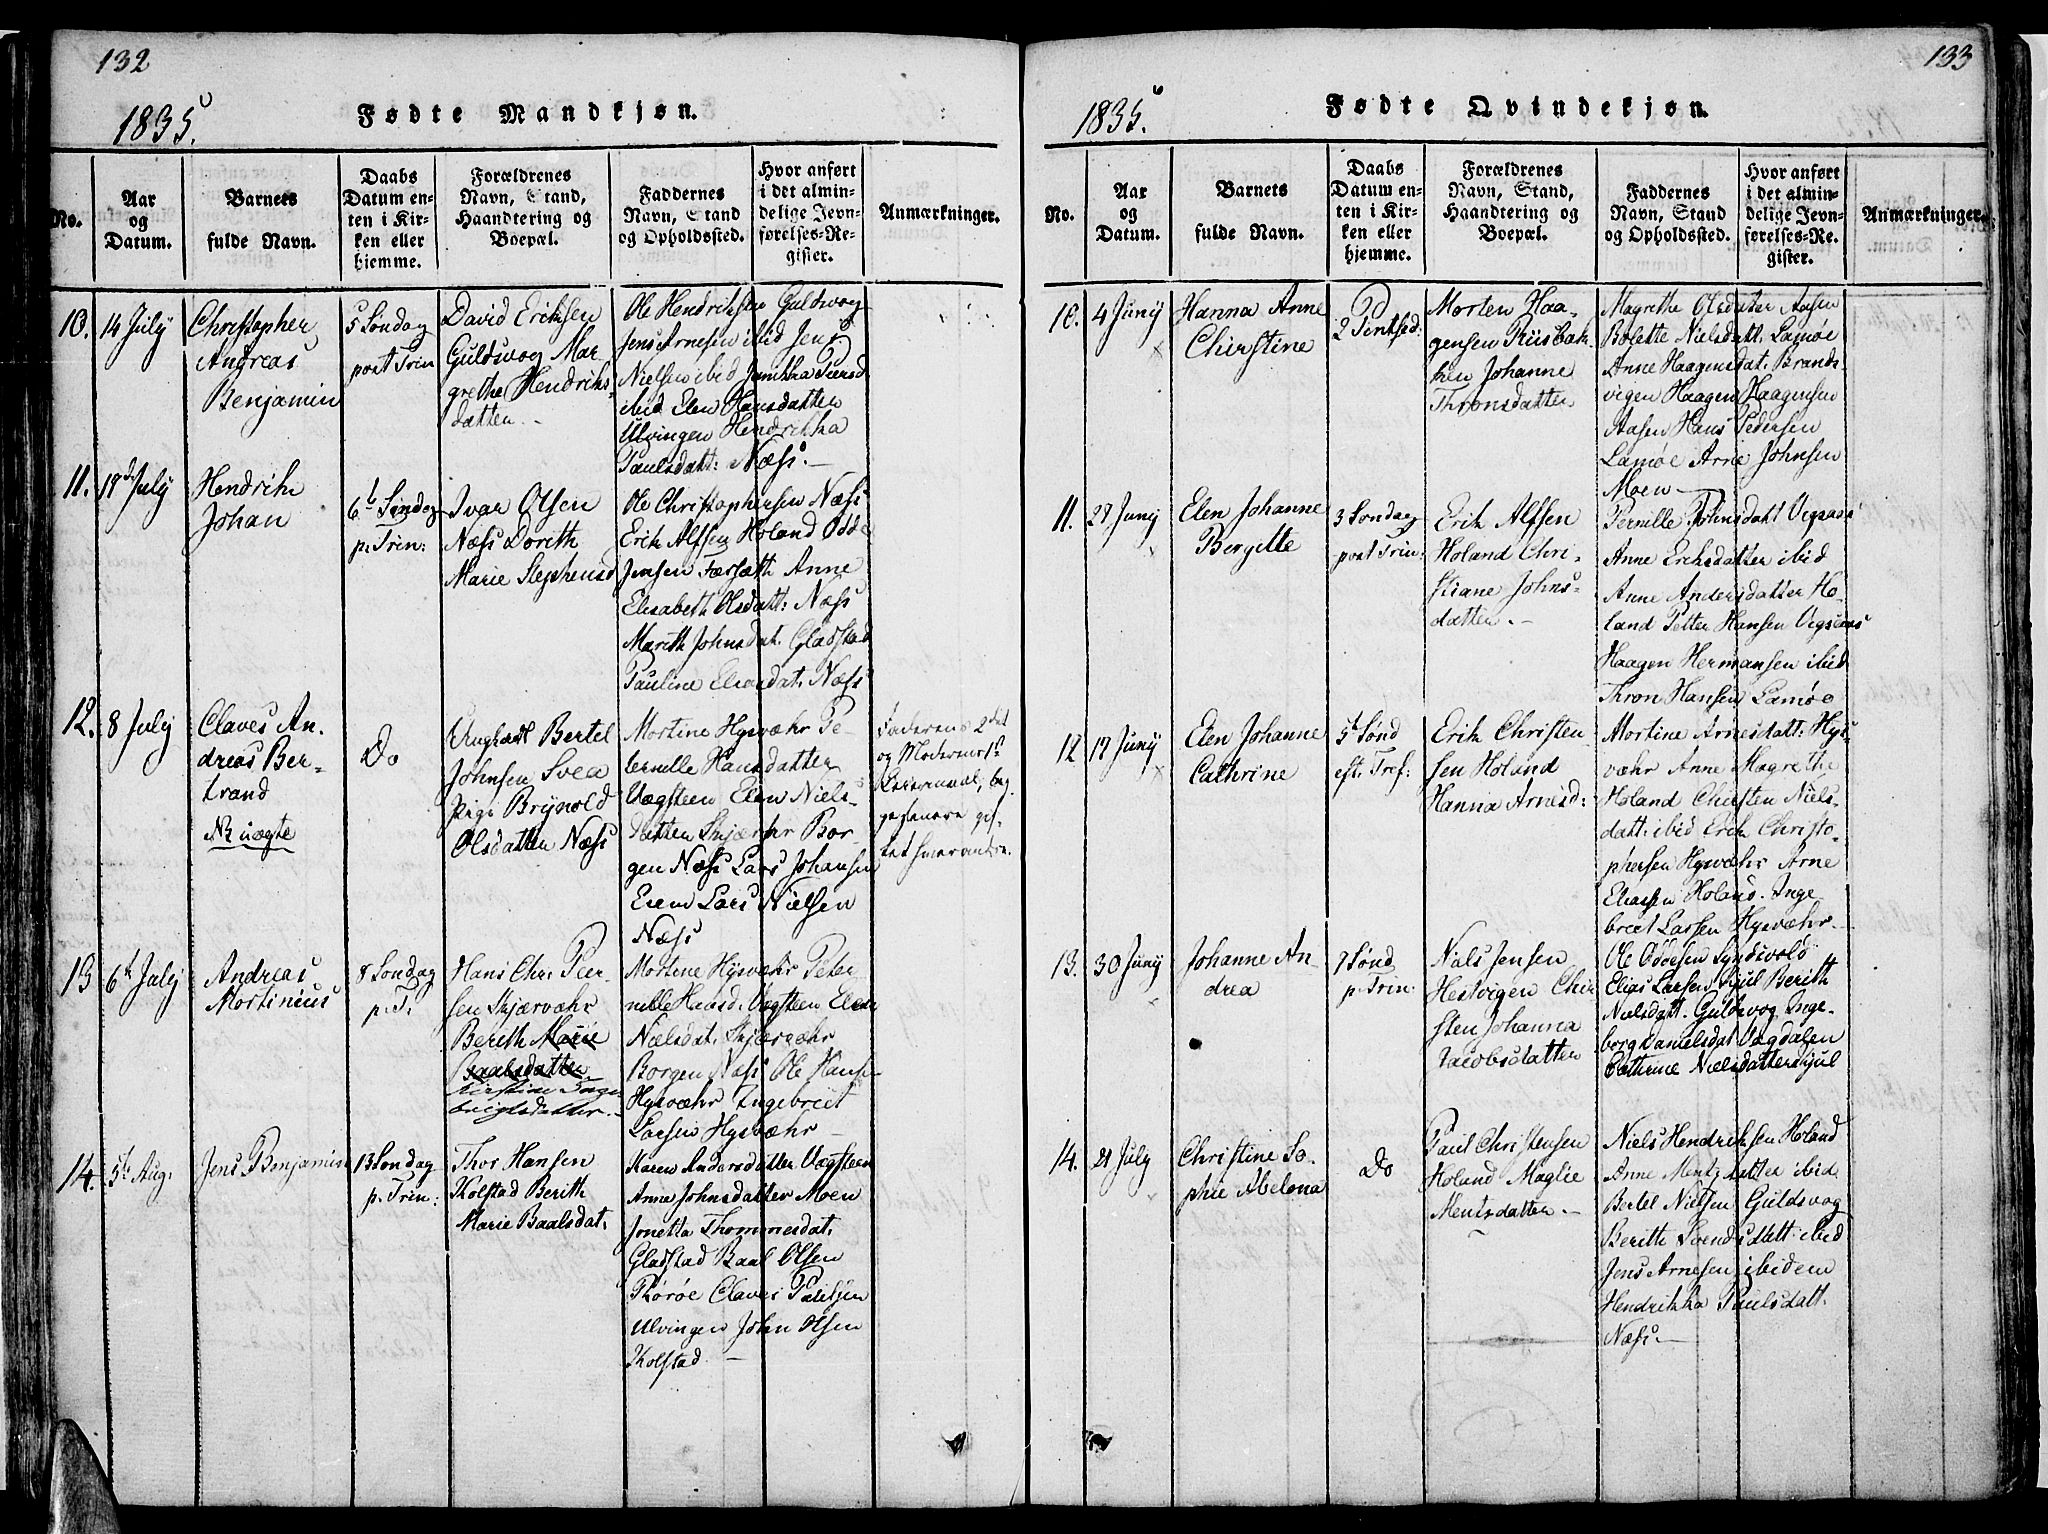 132
1835.
Fødte Mandkjøn.
No.
Aar
og
Datum.
Barnets
fulde Navn.
Daabs
Datum en-
ten i Kir-
ken eller
hjemme.
Forældrenes
Navn, Stand,
Haandtering og
Boepæl.
Faddernes
Navn, Stand
og Opholdssted.
Hvor anført
i det almin-
delige Jevn-
førelses-Re-
gister.
Anmærkninger.
10.
14 July
Christopher
Andreas
Benjamin
5 Søndag
post Trin
David Eriksen
Guldsvog Mar-
grethe Hendriks-
datter.
Ole Hendriksen Guldsvog
Jens Arnesen ibid Jens
Nielsen ibid
ibid Elen Hansdatter
Ulvingen Hendrikka
Paulsdatt: Næss.
11.
July
Hendrik
Johan
6t Søndag
p. Trin:
Ivar Olsen
Næss Dorith
Marie Stephensd
Ole Christophersen Næss
Erik Alfsen Holand Odde
Jensen Forsæth Anne
Elisabeth Olsdatt: Næss
Marith Johnsdat. Gladstad
Pauline Eliasdat. Næss
12.
8 July
Claves An-
dreas Ber-
trand
NB uægte
Do
Ungkarl Bertel
Johnsen Svea
Pige Brynold
Olsdatter Næss
Mortine Hysvæhr Pe-
ternille Hansdatter
Vegsteen Elen Niels-
datter Skjærvær Bor-
gen Næss Lars Johansen
Lars Nielsen
Næss
Faderens 2det
og Moderens 1ste
Leiermaal, beg-
ge senere gif-
tet
13
6t July
Andreas
Mortinius
8 Søndag
p. T.
Hans Chr. Peer-
sen Skjærvæhr
Berith Marie
Baalsdatter
Kirstine Inge-
brigtsdatter.
Mortine Hysvæhr Peter
nille Hansd. Vegsteen Elen
Nielsdat. Skjærvæhr
Borgen Næss Ole Hansen
Hysvæhr Ingebreit
Larsen Hysvæhr
14.
5te Aug.
Jens Benjamin
13 Søndag
p. Trin:
Thor Hansen
Kolstad Berith
Marie Baalsdat.
Karen Andersdatter Vegsteen
Anne Johnsdatter Moen
Jonetta Thommesdat.
Gladstad Baal Olsen
Thorøe Claves Paulsen
Ulvingen John Olsen
Kolstad.
133
1835.
Fødte Qvindekjøn.
No.
Aar
og
Datum.
Barnets
fulde Navn.
Daabs
Datum en-
ten i Kir-
ken eller
hjemme.
Forældrenes
Navn, Stand,
Haandtering og
Boepæl.
Faddernes
Navn, Stand
og Opholdssted.
Hvor anført
i det almin-
delige Jevn-
førelses-Re-
gister.
Anmærkninger.
10.
4 Juny
Hanna Anne
Chirstine
2 Pintsed:
Morten Haa-
gensen Riisbak-
ken Johanne
Thronsdatter
Magrethe Olsdatter Aasen
Bolette Nielsdatt. Lamøe
Anne Haagensdat. Brands-
vigen Haagen Haagensen
Aasen Hans Pedersen
Lamøe Arne Johnsen
Moen
11.
27 Juny
Elen Johanne
Bergitte
3 Søndag
post Trin:
Erik Alfsen
Holand Chri-
stiane Johns-
datter.
Pernille Johnsdatt Vegsaas
Anne Eriksdatter ibid
Anne Andersdatter Ho-
land Petter Hansen Vegsaas
Haagen Hermansen ibid
Thron Hansen Lamøe
12
17 Juny
Elen Johanne
Cathrine
5t Sønd
eft. Tref:
Erik Christen-
sen Holand
Hanna Arnesd:
Mortine Arnesdatt: Hys-
væhr Anne Magrethe
Holand Chirsten Niels-
datt: ibid Erik Christo-
phersen Hysvæhr Arne
Eliassen Holand. Inge
breet Larsen Hysvæhr.
13.
30 Juny
Johanne An-
drea
7 Sønd
p. Trin:
Niels Jensen
Hestvigen Chir
sten Johanna
Jacobsdatter
Ole Oddesen Syndsvold
Elias Larsen Skjul Berith
Nielsdatt. Guldsvog Inge-
borg Danielsdat Vegdalen
Cathrine Nielsdatter Skjul
14.
21 July
Christine So-
phie Abelona
Do
Paul Christensen
Holand Maglie
Mentsdatter
Niels Hendriksen Holand
Anne Mentsdatter ibid.
Bertel Nielsen Guldsvog
Berith Svendsdatt ibid
Jens Arnesen ibidem
Hendrikka Paulsdatt.
Næss.